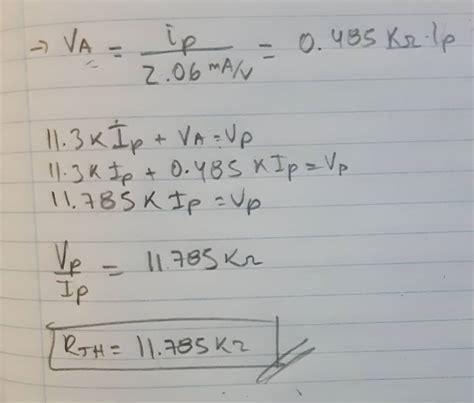 → VA = ip / 2.06 mA/V = 0.485 KΩ·ip
11.3K Ip + VA = Vp
11.3K Ip + 0.485 K Ip = Vp
11.785 K Ip = Vp
Vp / Ip = 11.785 KΩ
RTH = 11.785 KΩ